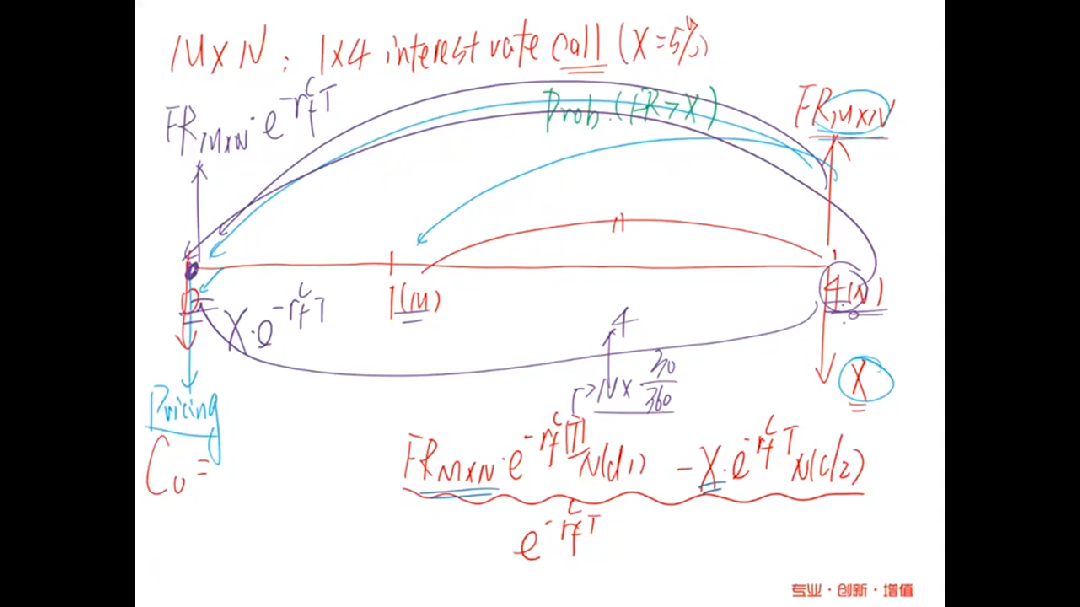 M×N: 1×4 interest rate call (X=5%)
FR_{M×N}·e^{-r_f^c T}
Prob.(FR>X)
FR_{M×N}
0
1(M)
4(N)
X·e^{-r_f^c T}
4
N×30/360
X
Pricing
C_0=
FR_{M×N}·e^{-r_f^c T}N(d1) -X·e^{-r_f^c T}N(d2)
e^{-r_f^c T}
专业·创新·增值